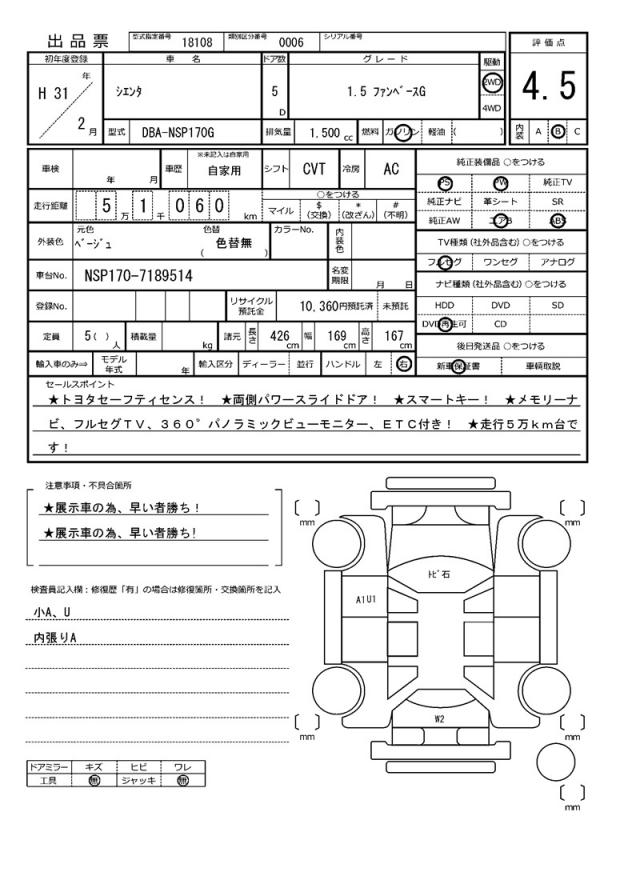 出品票 型式指定番号 18108 類別区分番号 0006 シリアル番号
評価点
初年度登録 車名 ドア数 グレード 駆動
H 31 年 2 月 シエンタ 5 D 1.5 ファンベースG 2WD 4WD
4.5
型式 DBA-NSP170G 排気量 1.500 cc 燃料 ガソリン 軽油 ( ) 内装 A B C
車検 年 月 車歴 ※未記入は自家用 自家用 シフト CVT 冷房 AC
走行距離 5 万 1 千 0 6 0 km
○をつける
マイル $ (交換) * (改ざん) # (不明)
外装色 元色 ベージュ 色替 色替無 ( ) カラーNo. 内装色
車台No. NSP170-7189514 名変期限 月 日
登録No. リサイクル預託金 10,360円預託済 未預託
定員 5 ( ) 人 積載量 kg 諸元 長さ 426 cm 幅 169 cm 高さ 167 cm
輸入車のみ⇨ モデル年式 年 輸入区分 ディーラー 並行 ハンドル 左 右
純正装備品 ○をつける
PS PW 純正TV
純正ナビ 革シート SR
純正AW エアB ABS
TV種類 (社外品含む) ○をつける
フルセグ ワンセグ アナログ
ナビ種類 (社外品含む) ○をつける
HDD DVD SD
DVD再生可 CD
後日発送品 ○をつける
新車保証書 車輌取説
セールスポイント
★トヨタセーフティセンス! ★両側パワースライドドア! ★スマートキー! ★メモリーナ
ビ、フルセグTV、360°パノラミックビューモニター、ETC付き! ★走行5万km台で
す!
注意事項・不具合箇所
★展示車の為、早い者勝ち!
★展示車の為、早い者勝ち!
検査員記入欄:修復歴「有」の場合は修復箇所・交換箇所を記入
小A、U
内張りA
ドアミラー キズ ヒビ ワレ
工具 無 ジャッキ 無
mm
mm
トビ石
A1U1
W2
mm
mm
mm